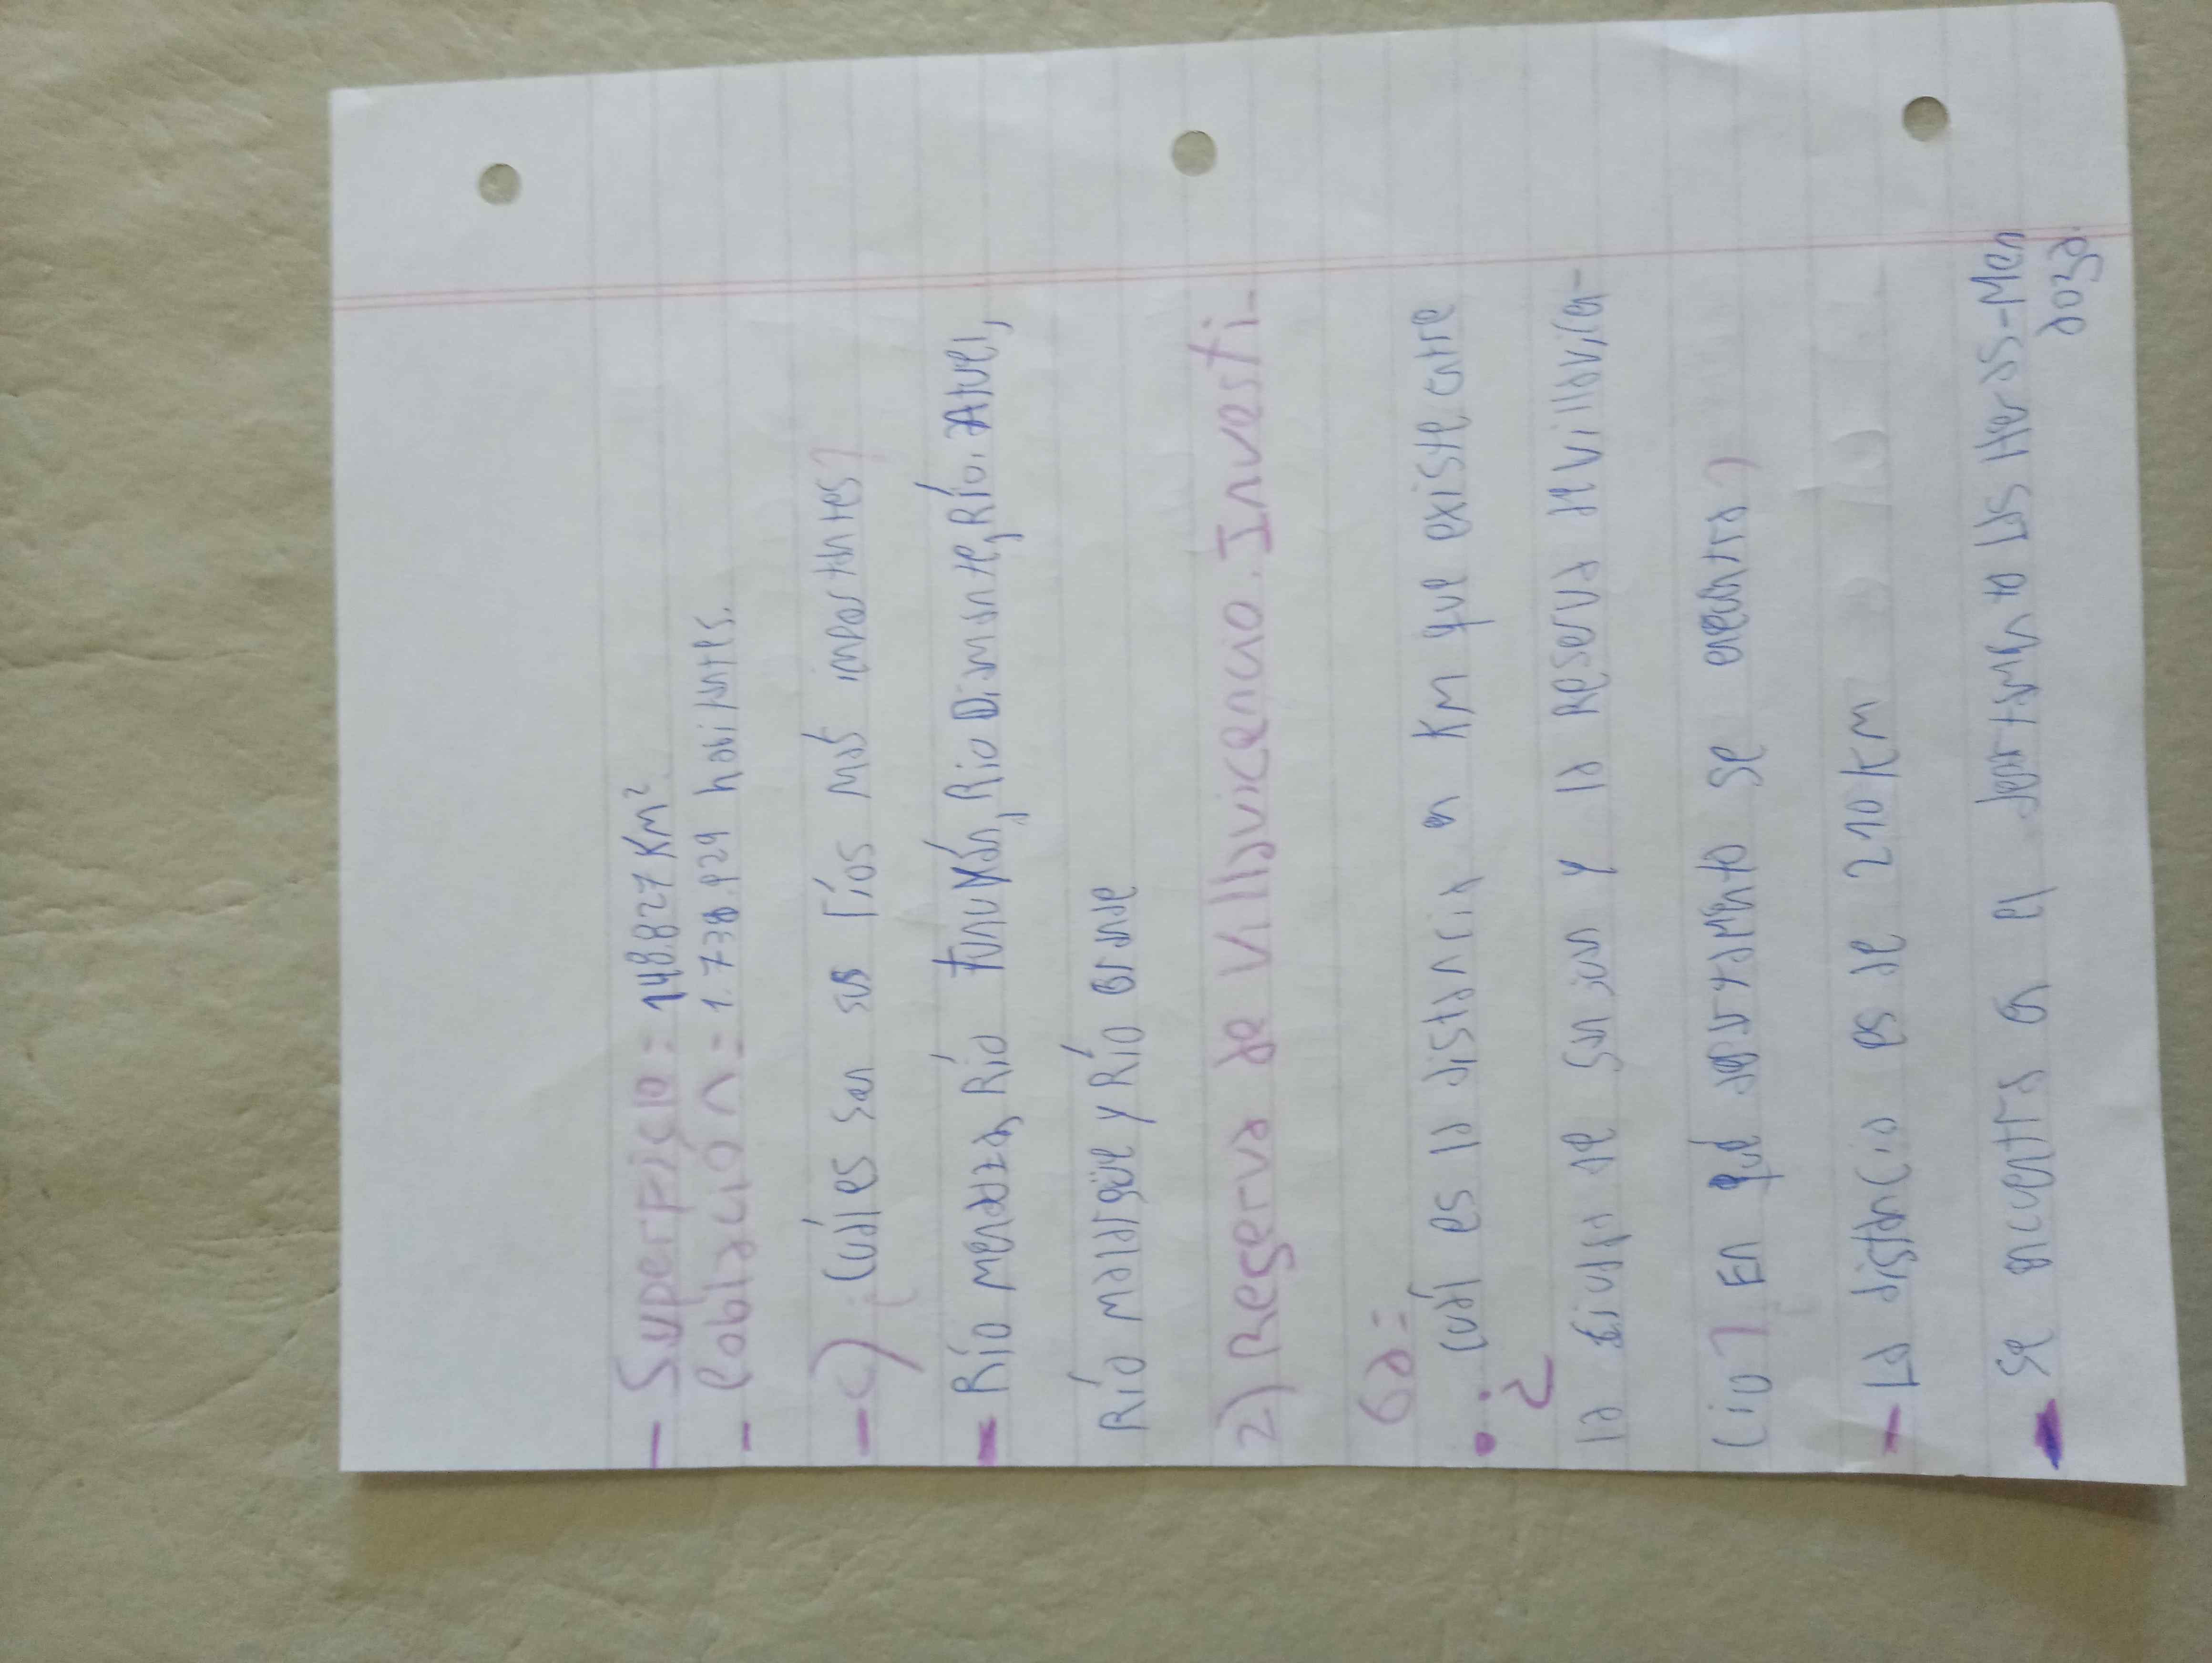 - Superficie = 148.827 Km².
- Población = 1.738.929 habitantes.
- c) ¿Cuáles son sus ríos más importantes?
- Río mendoza, Río Tunuyán, Río Diamante, Río Atuel,
Río malargüe y Río Grande
2) Reserva de Villavicencio. Investi-
ga:
• ¿Cuál es la distancia en Km que existe entre
la ciudad de San Juan y la Reserva de Villavicen-
cio? En qué departamento se encuentra?
- La distancia es de 210 Km
- Se encuentra en el departamento Las Heras-Men
doza.